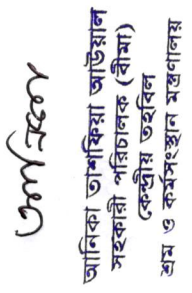 আনিকা তাশফিয়া আউয়াল
সহকারী পরিচালক (বীমা)
কেন্দ্রীয় তহবিল
শ্রম ও কর্মসংস্থান মন্ত্রণালয়